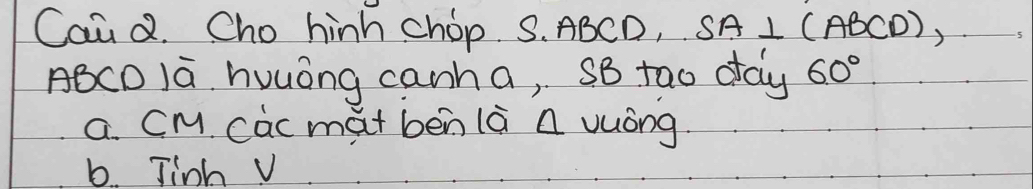 Câu 2. Cho hình chóp S.ABCD, SA ⊥ (ABCD),
ABCD là hvuông cạnh a, SB tạo đáy 60°
a. CM các mặt bên là Δ vuông.
b. Tính V